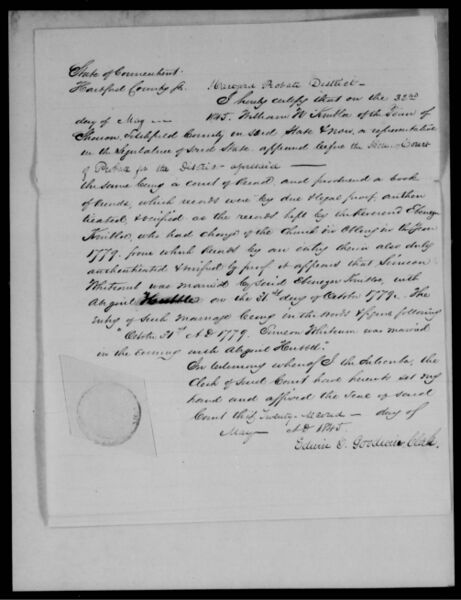 State of Connecticut.
Hartford County ss. Hartford Probate District –
I hereby certify that on the 22nd
day of May – 1845. William W. Knutler of the Town of
Sharon, Litchfield County in said State & now, a representative
in the Legislature of said State, appeared before the Court
of Probate for the District aforesaid –
the same being a court of Record, and produced a book
of records, which records were by due & legal proof, authen
ticated, & verified as the records kept by the Reverend Ebenezer
who had charge of the Church in in the year
1779. from which records by an entry therein also duly
authenticated & verified by proof it appears that Simeon
was married by said Ebenezer with
Abigail on the 31st day of October 1779. The
entry of such marriage being in the words & figures following
"October 31st AD 1779. Simeon was married
in the evening with Abigail Hubbell."
In testimony whereof I the subscriber, the
Clerk of said Court have hereunto set my
hand and affixed the Seal of said
Court this Twenty Second – day of
May AD 1845.
Edwin E. Goodwin Clerk.